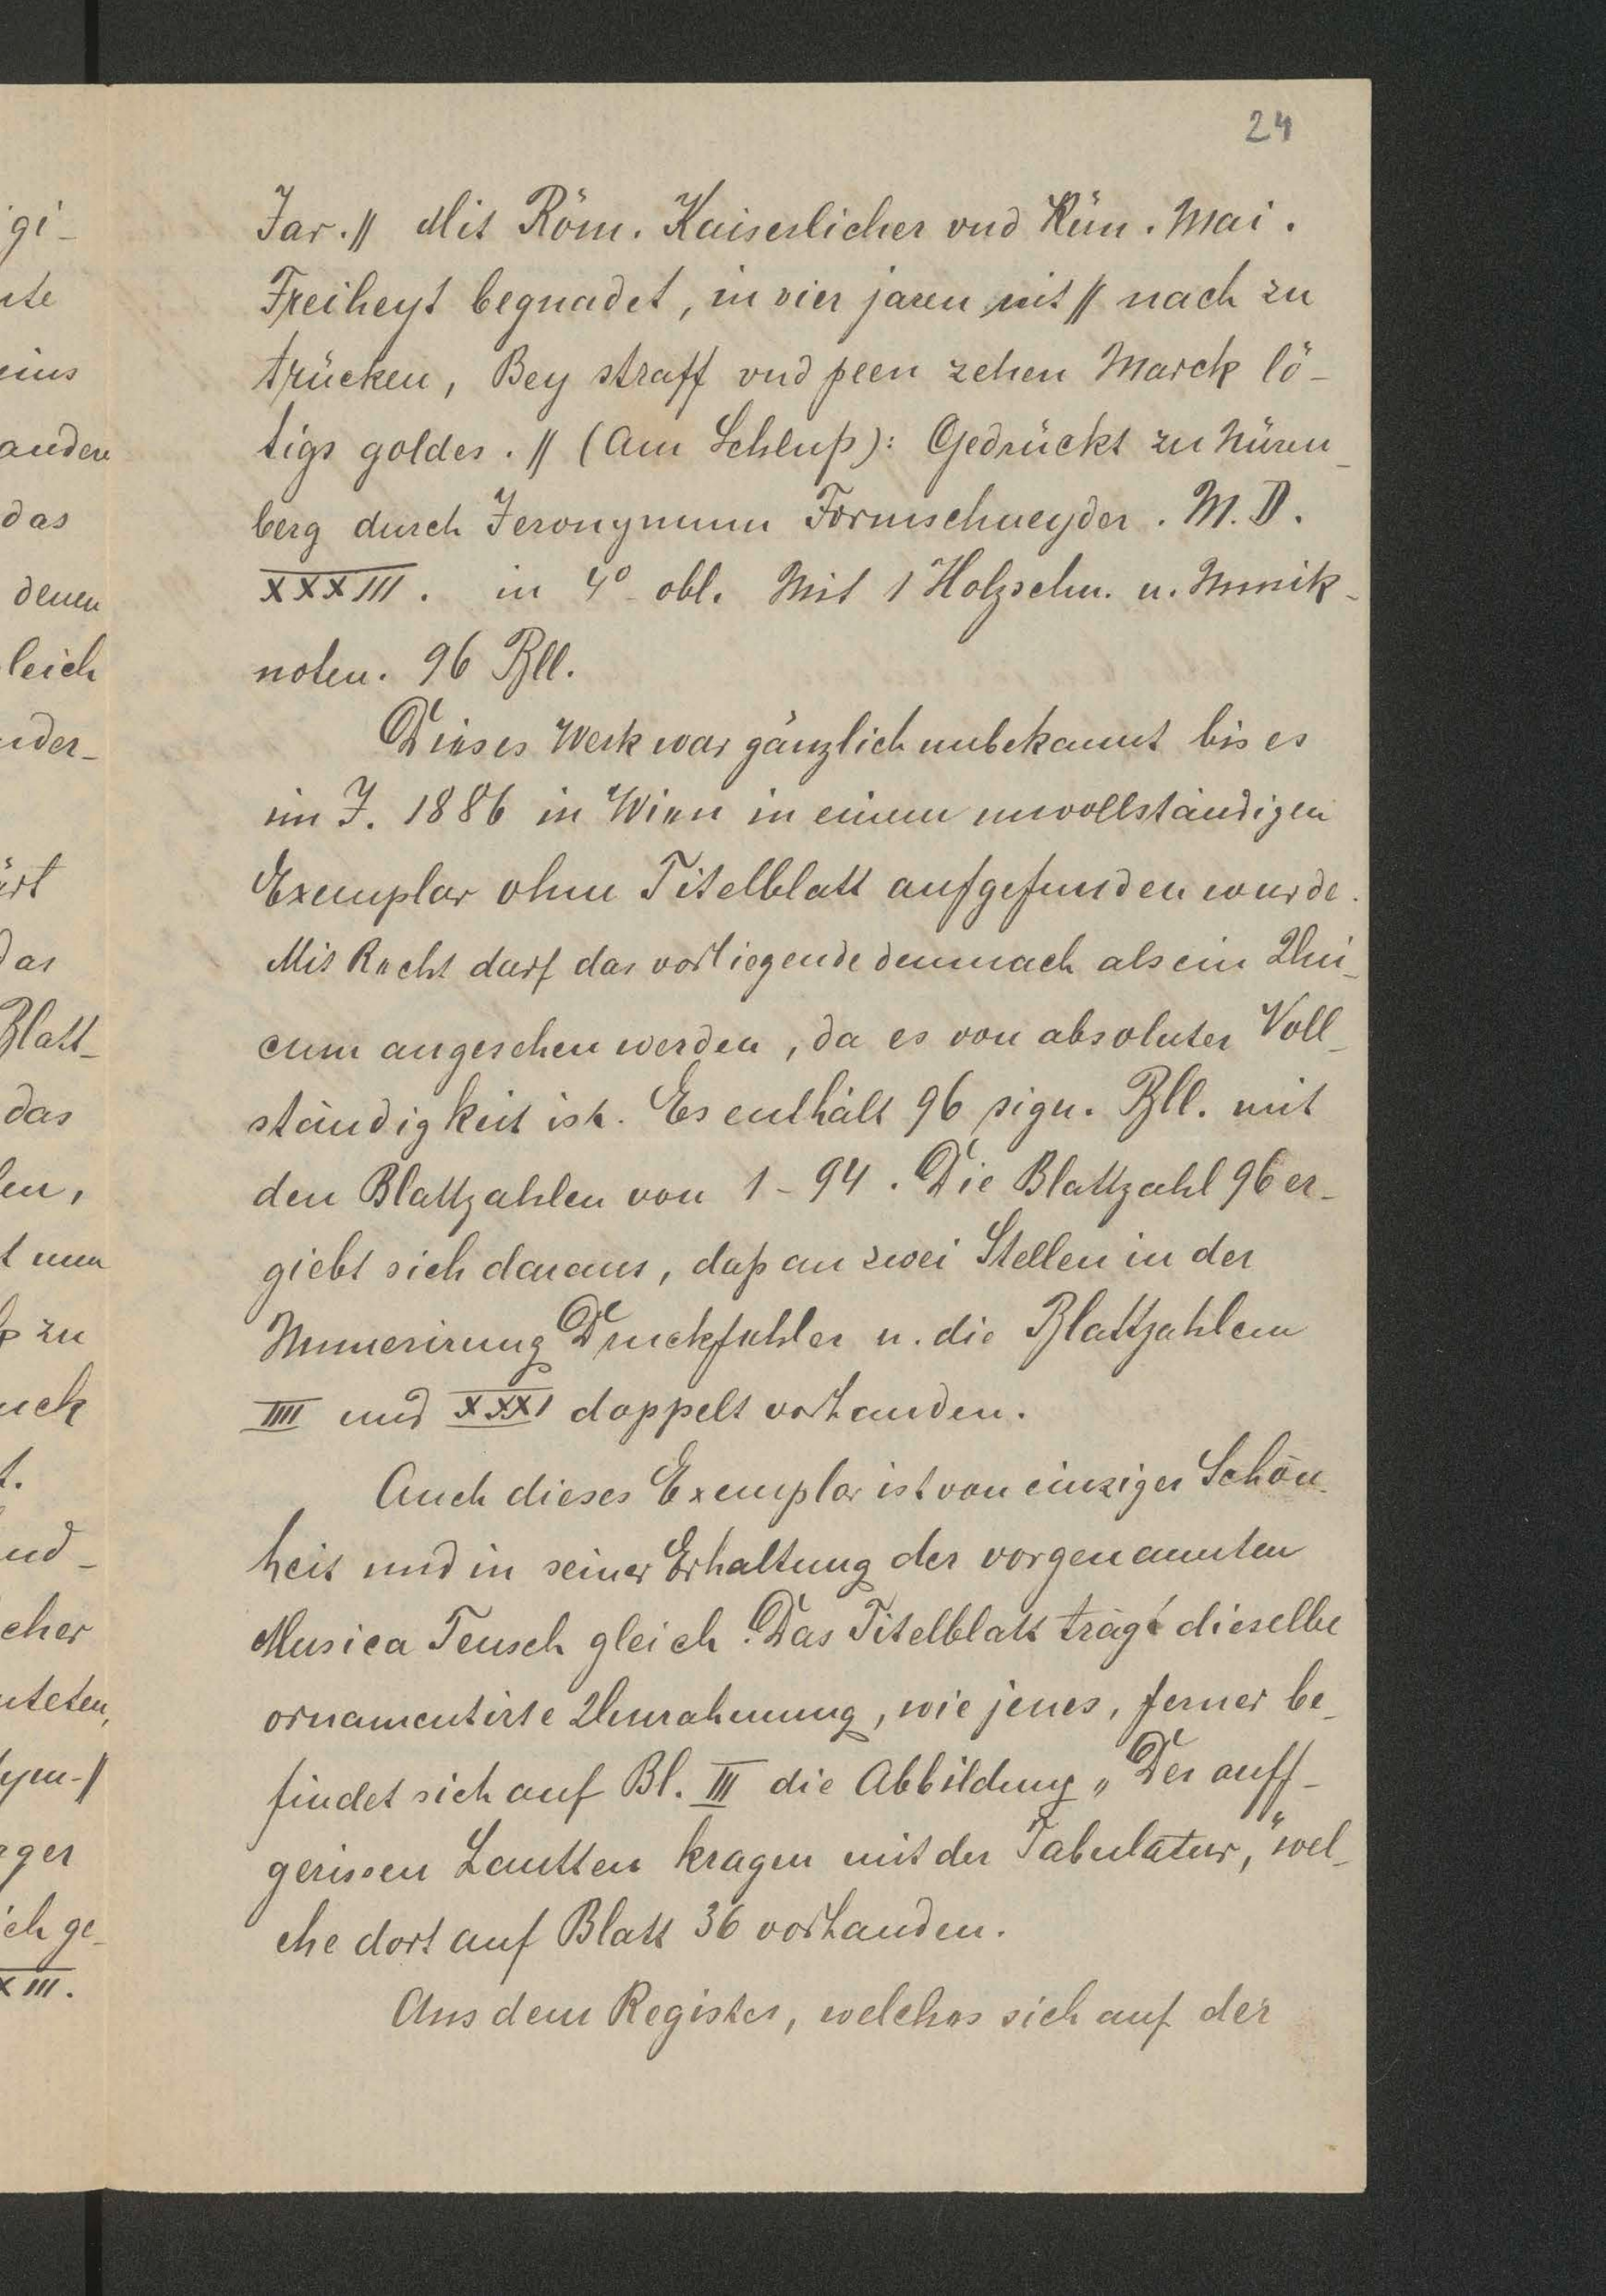 24
Jar.// Mit Röm. Kaiserlicher vnd Kün. Mai.
Freiheyt begnadet, in vier jaren nit // nach zu
trücken, Bey straff vnd peen zehen Marck lö-
tigs goldes. // (Am Schluß): Gedrückt zu Nüren-
berg durch Jeronymum Formschneyder. M. D.
XXXIII. in 4° obl. Mit 1 Holzschn. u. Musik-
noten. 96 Bll.
Dieses Werk war gänzlich unbekannt bis es
im J. 1886 in Wien in einem unvollständigen
Exemplar ohne Titelblatt aufgefunden wurde.
Mit Recht darf das vorliegende demnach als ein Uni-
cum angesehen werden, da es von absoluter Voll-
ständigkeit ist. Es enthält 96 sign. Bll. mit
den Blattzahlen von 1-94. Die Blattzahl 96 er-
giebt sich daraus, daß an zwei Stellen in der
Numerirung Druckfehler u. die Blattzahlem
IIII und XXXI doppelt vorhanden.
Auch dieses Exemplar ist von einziger Schön-
heit und in seiner Erhaltung der vorgenannten
Musica Teusch gleich. Das Titelblatt trägt dieselbe
ornamentirte Umrahmung, wie jenes, ferner be-
findet sich auf Bl. III die Abbildung „Der auff-
gerissen Lautten kragen mit der Tabulatur," wel-
che dort auf Blatt 36 vorhanden.
Aus dem Register, welches sich auf der